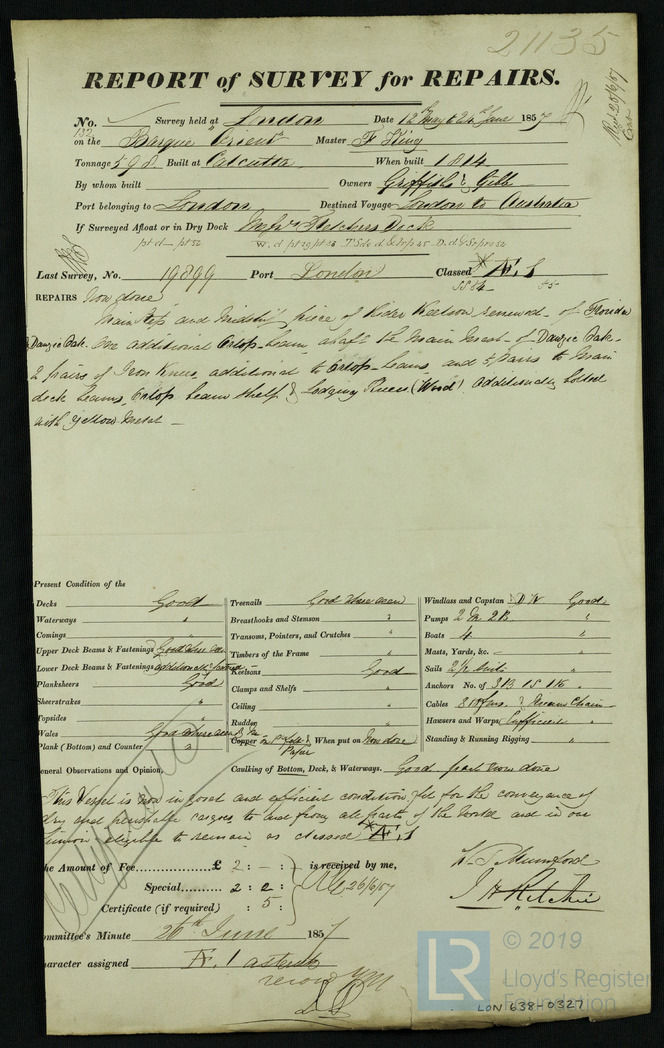 21135
REPORT of SURVEY for REPAIRS.
Recd 25/6/57
No. 132 Survey held at London Date 12 May & 24th June 1857
on the Barque "Orient" Master F King
Tonnage 598 Built at Calcutta When built 1814
By whom built Owners Griffiths & Gill
Port belonging to London Destined Voyage London to Australia
If Surveyed Afloat or in Dry Dock Messrs Fletchers Dock
Last Survey, No. 19899 Port London Classed Æ.1
REPAIRS Now done
Main step and Midship piece of Rider Keelson renewed - of Florida
& Danzic Oak. One additional Orlop-beam, abaft the Main Mast - of Danzic Oak -
2 pairs of Iron Knees additional to Orlop-beams, and 5 pairs to Main
deck beams, Orlop beam shelf & Lodging Knees (Wood) additionally bolted
with Yellow Metal -
Present Condition of the
Decks Good
Waterways "
Comings "
Upper Deck Beams & Fastenings Good where seen
Lower Deck Beams & Fastenings additionally fastened
Planksheers Good
Sheerstrakes "
Topsides "
Wales Good where seen
Plank (Bottom) and Counter "
Treenails Good where seen
Breasthooks and Stemson "
Transoms, Pointers, and Crutches "
Timbers of the Frame "
Keelsons Good
Clamps and Shelfs "
Ceiling "
Rudder "
Copper When put on Now done
Caulking of Bottom, Deck, & Waterways. Good part now done
Windlass and Capstan Good
Pumps 2 "
Boats 4 "
Masts, Yards, &c. - "
Sails 2 Suits "
Anchors No. of 3B 1S 1K "
Cables Chain
Hawsers and Warps Sufficient "
Standing & Running Rigging "
General Observations and Opinion,
This Vessel is now in good and efficient condition, fit for the conveyance of
dry and perishable cargoes to and from all parts of the World and in our
opinion eligible to remain as classed Æ.1
Certificate
The Amount of Fee £ 2 : - : is received by me,
Special 2 : 2 : 26/6/57
Certificate (if required) : 5 :
J H Ritchie
Committee's Minute 26th June 1857
Character assigned Æ.1 asterisk
© 2019
LR Lloyd's Register
Foundation
LON 638-0327